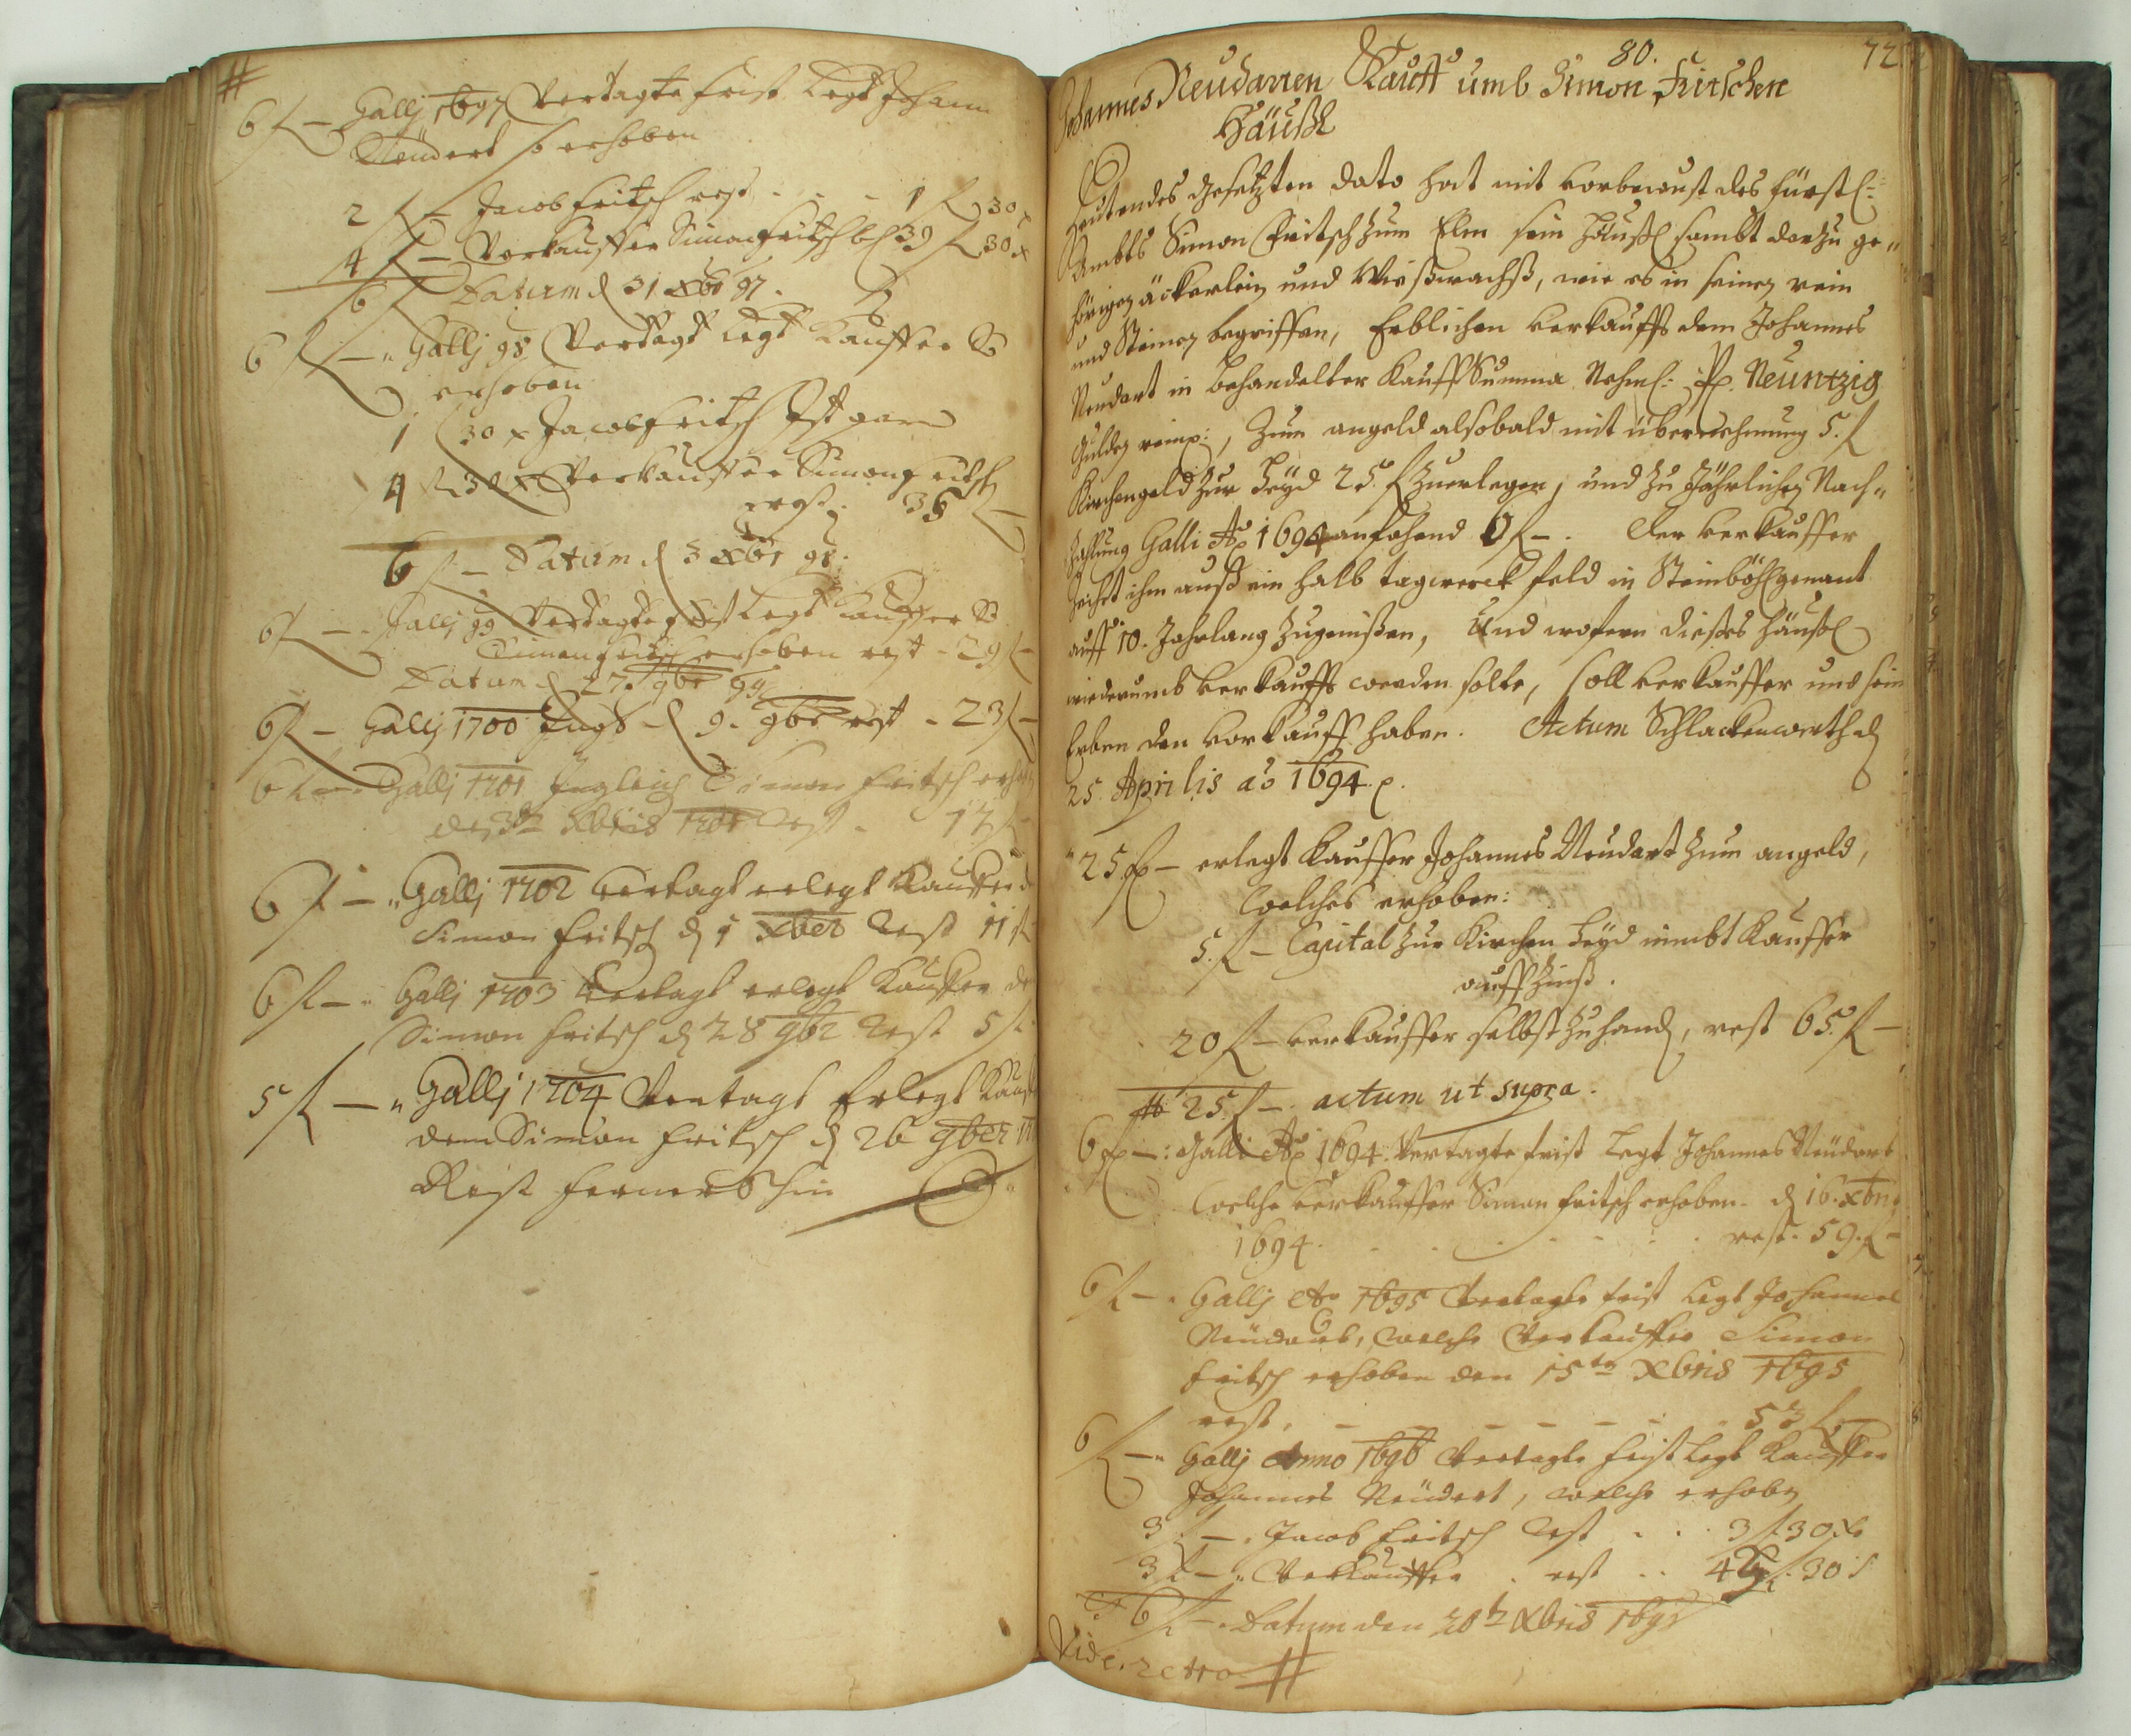 #
6 f — Gallj 1697 Vertagte frist legt Johann
Neudert so erhoben
2 f — Jacob Fritsch rest - - - 1 f 30 x
4 f — Verkauffer Simon Fritsch 39 f 30 x
6 f Datum d 31 Xbr 97.
6 f — Gallj 98 Vertagt legt Kauffer So
erhoben
1 f 30 x Jacob Fritsch
4 f 30 x Verkauffer Simon Fritsch
rest. 35 f —
6 f — Datum d 3 Xbr 98.
6 f — Gallj 99 Vertagte frist legt Kauffer So
Simon Fritsch erhoben rest - 29 f —
Datum d 27. 9br 99
6 f — Gallj 1700 d 9. 9br rest - 23 f —
6 f — Gallj 1701 Ingleich Simon Fritsch
Xbris 1701 Rest - 17 f
6 f — Gallj 1702 vertagt erlegt Kauffer
Simon Fritsch d 1 Xber Rest 11 f
6 f — Gallj 1703 Vertagt erlegt Kauffer
Simon Fritsch d 28 9br Rest 5 f
5 f — Gallj 1704 Vertagt Erlegt
dem Simon Fritsch d 26 9ber
Rest ferners hin
80.
72
Johannes Neudarten Kauff umb Simon Fritschen
Häußl
Heutendes gesetzten dato hat mit vorbewust des fürstl:
Ambts Simon Fritsch zum Elm sein Häußl sambt darzu ge-
hörigen äckerlein und Wießwachß, wie es in seinen rein
und Steinen begriffen, Erblichen verkaufft dem Johannes
Neudart in behandelter Kauff Summa Nehml: Neuntzig
Gulden reinl:, Zum angeld alsobald mit übernehmung 5. f
Kirchengeld zur Heyd 25. f zuerlegen, und zu Jährlichen Nach-
zahlung Galli Ao 1694 anfahend 6 f —. der verkauffer
Zeihet ihm auß ein halb tagwerck feld in Steinböhl genant
auff 10. Jahrlang zugenißen, Und wofern dieses Häußl
wiederumb verkaufft werden solte, soll verkauffer und sein
Erben den vorkauff haben. Actum Schlackenwerth d
25 Aprilis ao 1694.
25 f — erlegt Kauffer Johannes Neudart zum angeld,
Welches erhoben:
5. f — Capital zur Kirchen Heyd nimbt Kauffer
auff Zinß.
20 f — verkauffer selbst zuhand, rest 65. f —
25. f — actum ut supra.
6 f —: Galli Ao 1694. Vertagte frist Legt Johannes Neudart
Welche verkauffer Simon Fritsch erhoben. d 16. Xbris
1694 . . . . . . rest. 59. f —
6 f — Gallj Ao 1695 Vertagte frist legt Johannes
Neudart, welche Verkauffer Simon
Fritsch erhoben den 15tn Xbris 1695
rest. — — — — — 53 f —
6 f — Gallj Anno 1696 Vertagte frist legt Kauffer
Johannes Neudert, welche erhoben
3 f —. Jacob Fritsch Rest . . . 3 f 30 x
3 f — Verkauffer . rest . . 45 f 30
6 f —. Datum den 20tn Xbris
Vide retro #